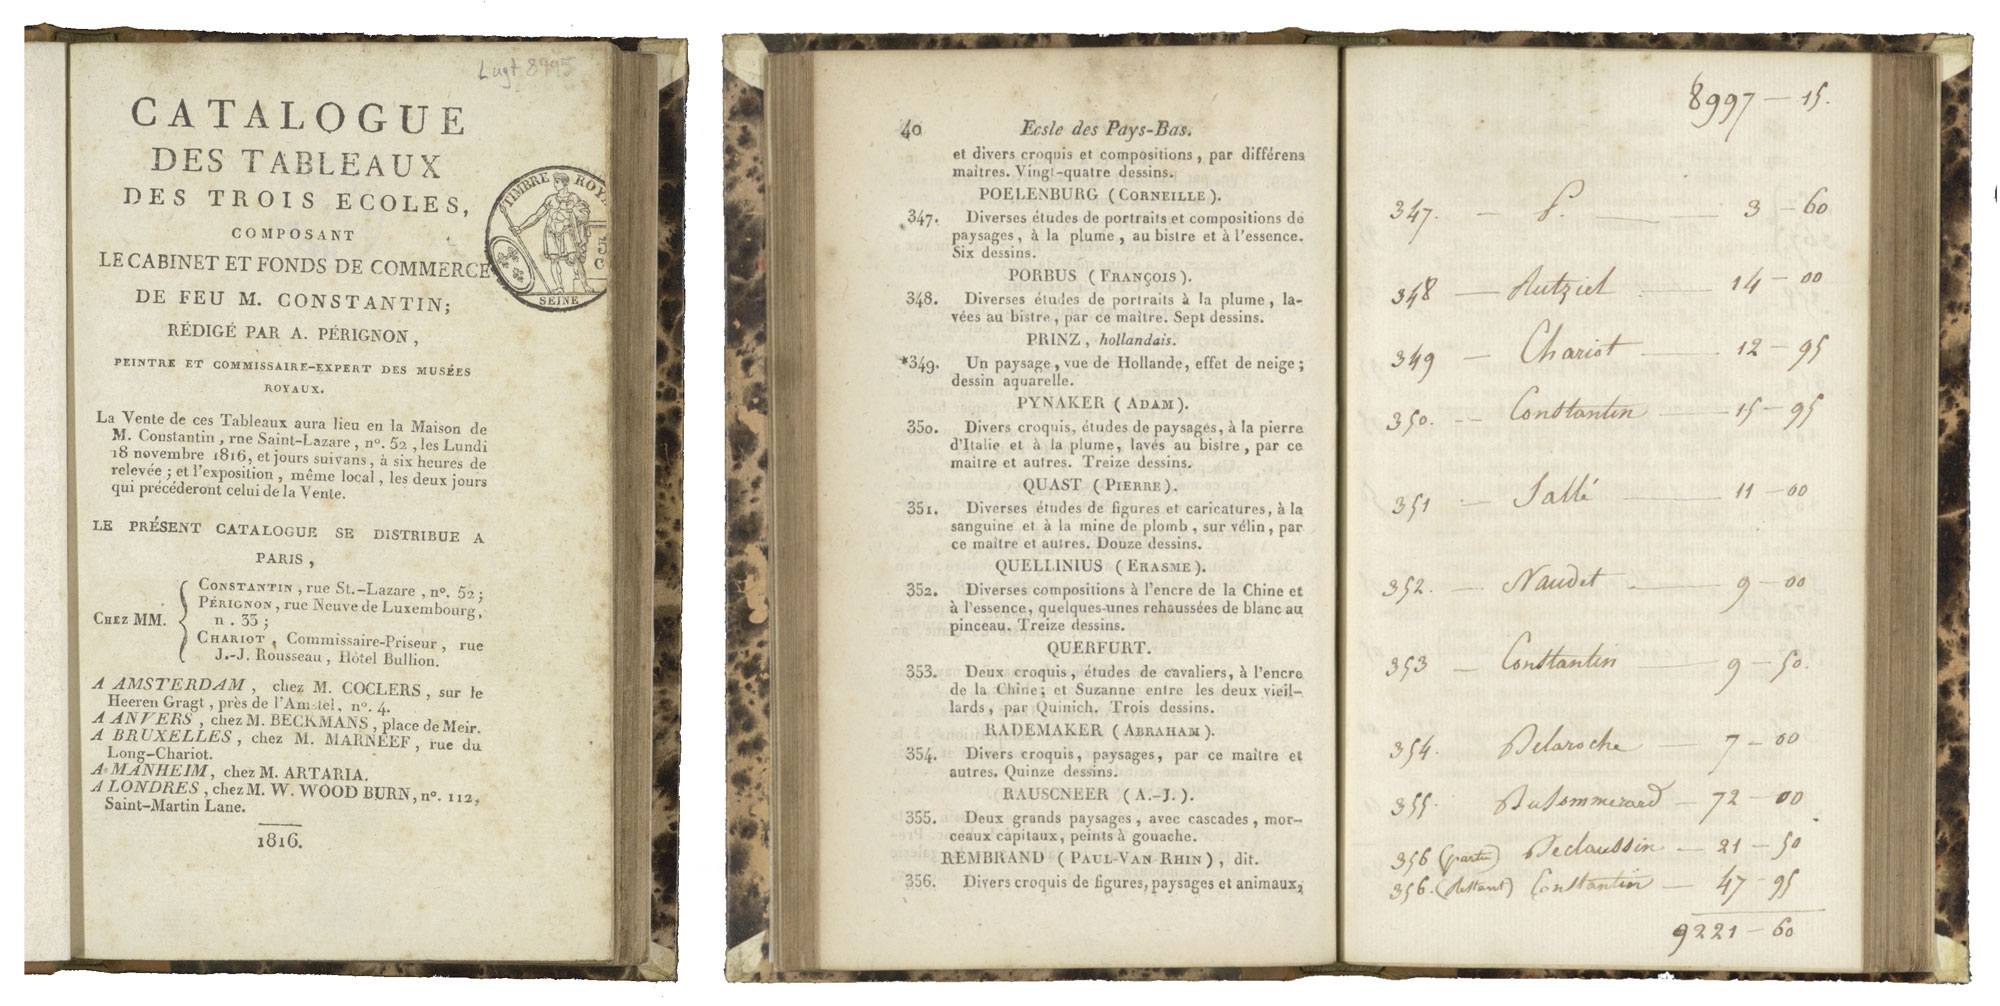 Lugt 8995
CATALOGUE
DES TABLEAUX
DES TROIS ECOLES,
COMPOSANT
LE CABINET ET FONDS DE COMMERCE
DE FEU M. CONSTANTIN;
RÉDIGÉ PAR A. PÉRIGNON,
PEINTRE ET COMMISSAIRE-EXPERT DES MUSÉES
ROYAUX.
TIMBRE ROY
5
C
SEINE
La Vente de ces Tableaux aura lieu en la Maison de
M. Constantin, rue Saint-Lazare, n°. 52, les Lundi
18 novembre 1816, et jours suivans, à six heures de
relevée; et l'exposition, même local, les deux jours
qui précéderont celui de la Vente.
LE PRÉSENT CATALOGUE SE DISTRIBUE A
PARIS,
CHEZ MM.
CONSTANTIN, rue St.-Lazare, n°. 52;
PÉRIGNON, rue Neuve de Luxembourg,
n. 33;
CHARIOT, Commissaire-Priseur, rue
J.-J. Rousseau, Hôtel Bullion.
A AMSTERDAM, chez M. COCLERS, sur le
Heeren Gragt, près de l'Amstel, n°. 4.
A ANVERS, chez M. BECKMANS, place de Meir.
A BRUXELLES, chez M. MARNEEF, rue du
Long-Chariot.
A MANHEIM, chez M. ARTARIA.
A LONDRES, chez M. W. WOOD BURN, n°. 112,
Saint-Martin Lane.
1816.
40 Ecsle des Pays-Bas.
et divers croquis et compositions, par différens
maîtres. Vingt-quatre dessins.
POELENBURG (CORNEILLE).
347. Diverses études de portraits et compositions de
paysages, à la plume, au bistre et à l'essence.
Six dessins.
PORBUS (FRANÇOIS).
348. Diverses études de portraits à la plume, la-
vées au bistre, par ce maître. Sept dessins.
PRINZ, hollandais.
*349. Un paysage, vue de Hollande, effet de neige;
dessin aquarelle.
PYNAKER (ADAM).
350. Divers croquis, études de paysages, à la pierre
d'Italie et à la plume, lavés au bistre, par ce
maître et autres. Treize dessins.
QUAST (PIERRE).
351. Diverses études de figures et caricatures, à la
sanguine et à la mine de plomb, sur vélin, par
ce maître et autres. Douze dessins.
QUELLINIUS (ERASME).
352. Diverses compositions à l'encre de la Chine et
à l'essence, quelques-unes rehaussées de blanc au
pinceau. Treize dessins.
QUERFURT.
353. Deux croquis, études de cavaliers, à l'encre
de la Chine; et Suzanne entre les deux vieil-
lards, par Quinich. Trois dessins.
RADEMAKER (ABRAHAM).
354. Divers croquis, paysages, par ce maître et
autres. Quinze dessins.
RAUSCNEER (A.-J.).
355. Deux grands paysages, avec cascades, mor-
ceaux capitaux, peints à gouache.
REMBRAND (PAUL-VAN-RHIN), dit.
356. Divers croquis de figures, paysages et animaux,
8997 — 15.
347. — P. — 3 — 60
348 — 14 — 00
349 — Chariot — 12 — 95
350. — Constantin — 15 — 95
351 — Sallé — 11 — 00
352. — Naudet — 9 — 00
353 — Constantin — 9 — 50.
354. Delaroche — 7 — 00
355. DuSommerard — 72 — 00
356 (partie) Declaussin — 21 — 50
356. (Restant) Constantin — 47 — 95
9221 — 60